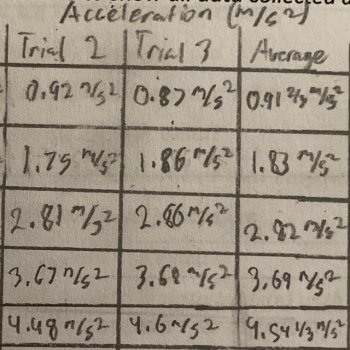 Acceleration (m/s2)
Trial 2 Trial 3 Average
0.92 m/s2 0.87 m/s2 0.91 2/3 m/s2
1.75 m/s2 1.86 m/s2 1.83 m/s2
2.81 m/s2 2.86 m/s2 2.82 m/s2
3.67 m/s2 3.68 m/s2 3.69 m/s2
4.48 m/s2 4.6 m/s2 4.54 1/3 m/s2